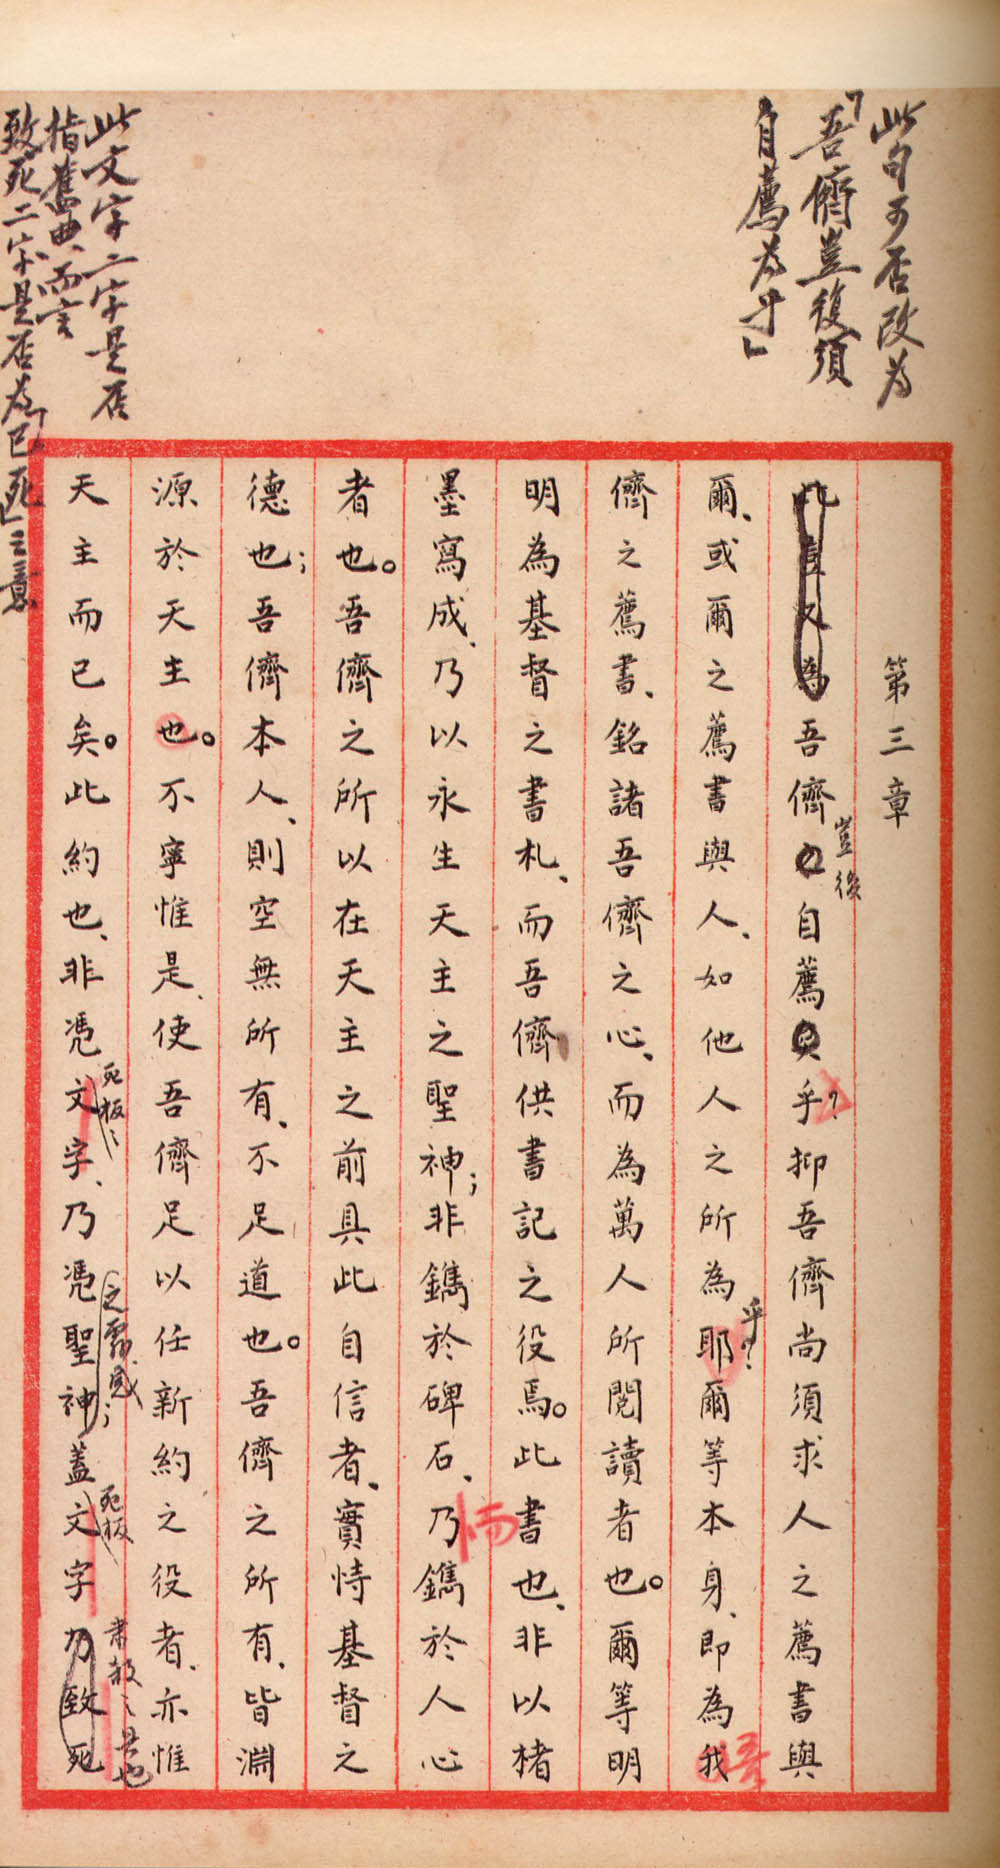 此句可否改為
「吾儕豈復須
自薦為乎」
第三章
此豈又為吾儕之自薦乎?抑吾儕尚須求人之薦書與
豈復
爾、或爾之薦書與人、如他人之所為耶爾等本身、即為我
乎?
吾
儕之薦書、銘諸吾儕之心、而為萬人所閱讀者也。爾等明
明為基督之書札、而吾儕供書記之役焉。此書也、非以楮
墨寫成、乃以永生天主之聖神;非鐫於碑石、乃鐫於人心
者也。吾儕之所以在天主之前具此自信者、實恃基督之
德也;吾儕本人、則空無所有、不足道也。吾儕之所有、皆淵
源於天主也。不寧惟是、使吾儕足以任新約之役者、亦惟
天主而已矣。此約也、非憑文字、乃憑聖神蓋文字乃致死
死板
之靈感;
死板
肅殺
是也
此文字二字是否
指舊典、而言
致死二字是否為「已死」之意